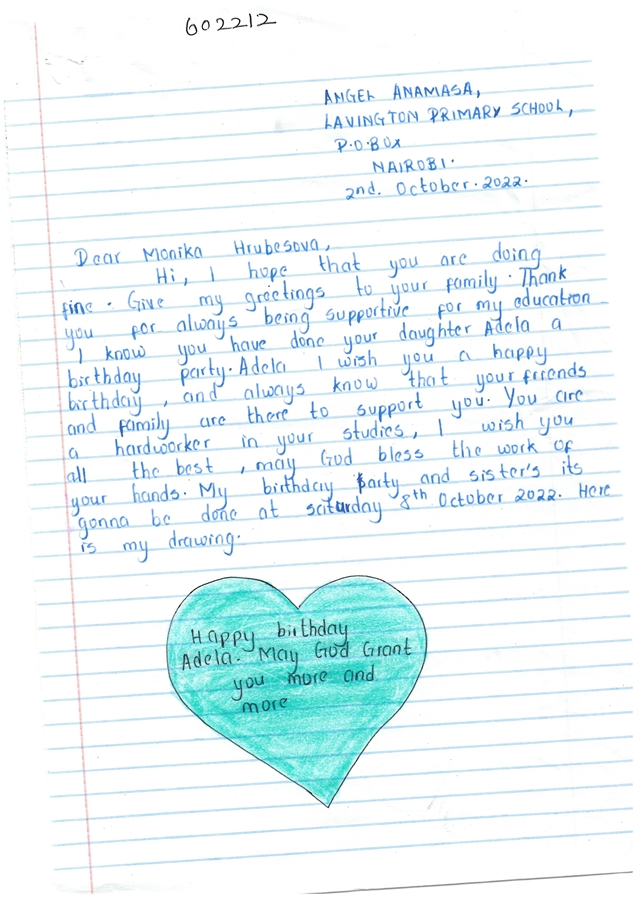 602212
ANGEL ANAMASA,
LAVINGTON PRIMARY SCHOOL,
P.O.BOX
NAIROBI.
2nd. October. 2022.
Dear Monika Hrubesova,
Hi, I hope that you are doing
fine. Give my greetings to your family. Thank
you for always being supportive for my education
I know you have done your daughter Adela a
birthday party. Adela I wish you a happy
birthday, and always know that your friends
and family are there to support you. You are
a hardworker in your studies, I wish you
all the best, may God bless the work of
your hands. My birthday party and sister's its
gonna be done at saturday 8th October 2022. Here
is my drawing.
Happy birthday
Adela. May God Grant
you more and
more